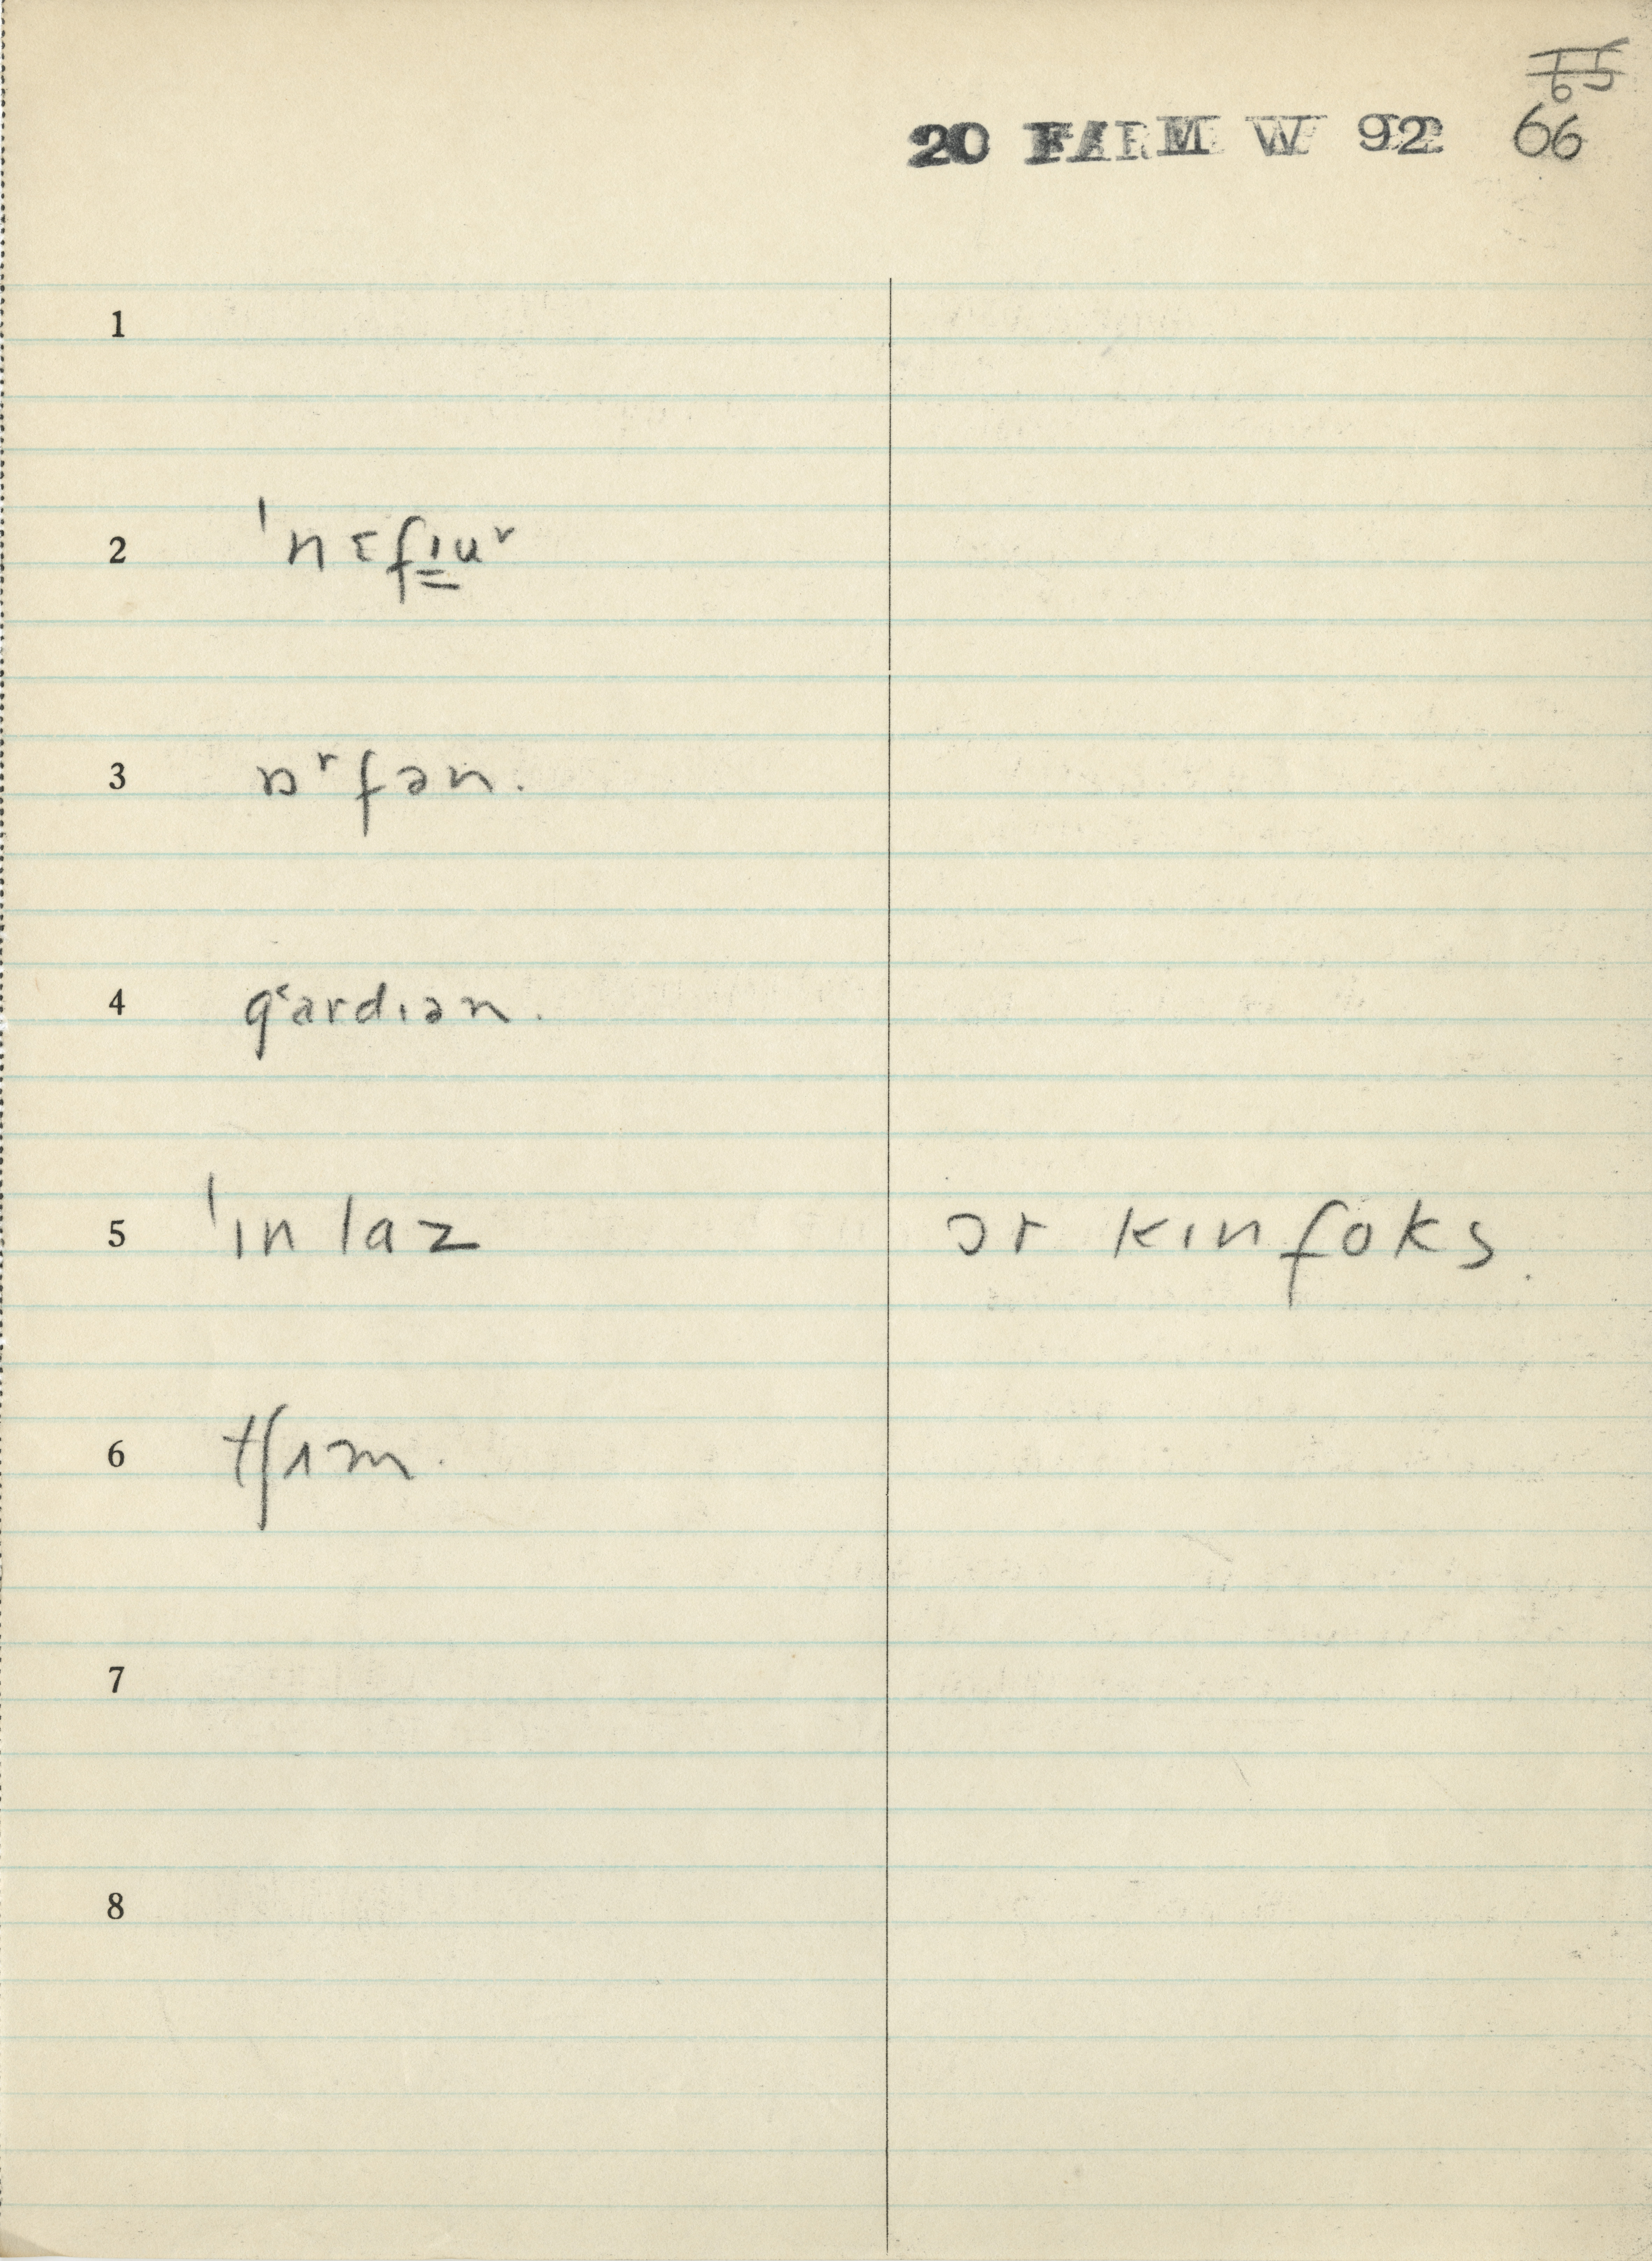 65
20 FARM W 92 66
1
2 ˈnɛfɪuʳ
3 ɒʳfən.
4 gˤardɪən.
5 ˈɪn laz ɔr kɪnfoks.
6
7
8